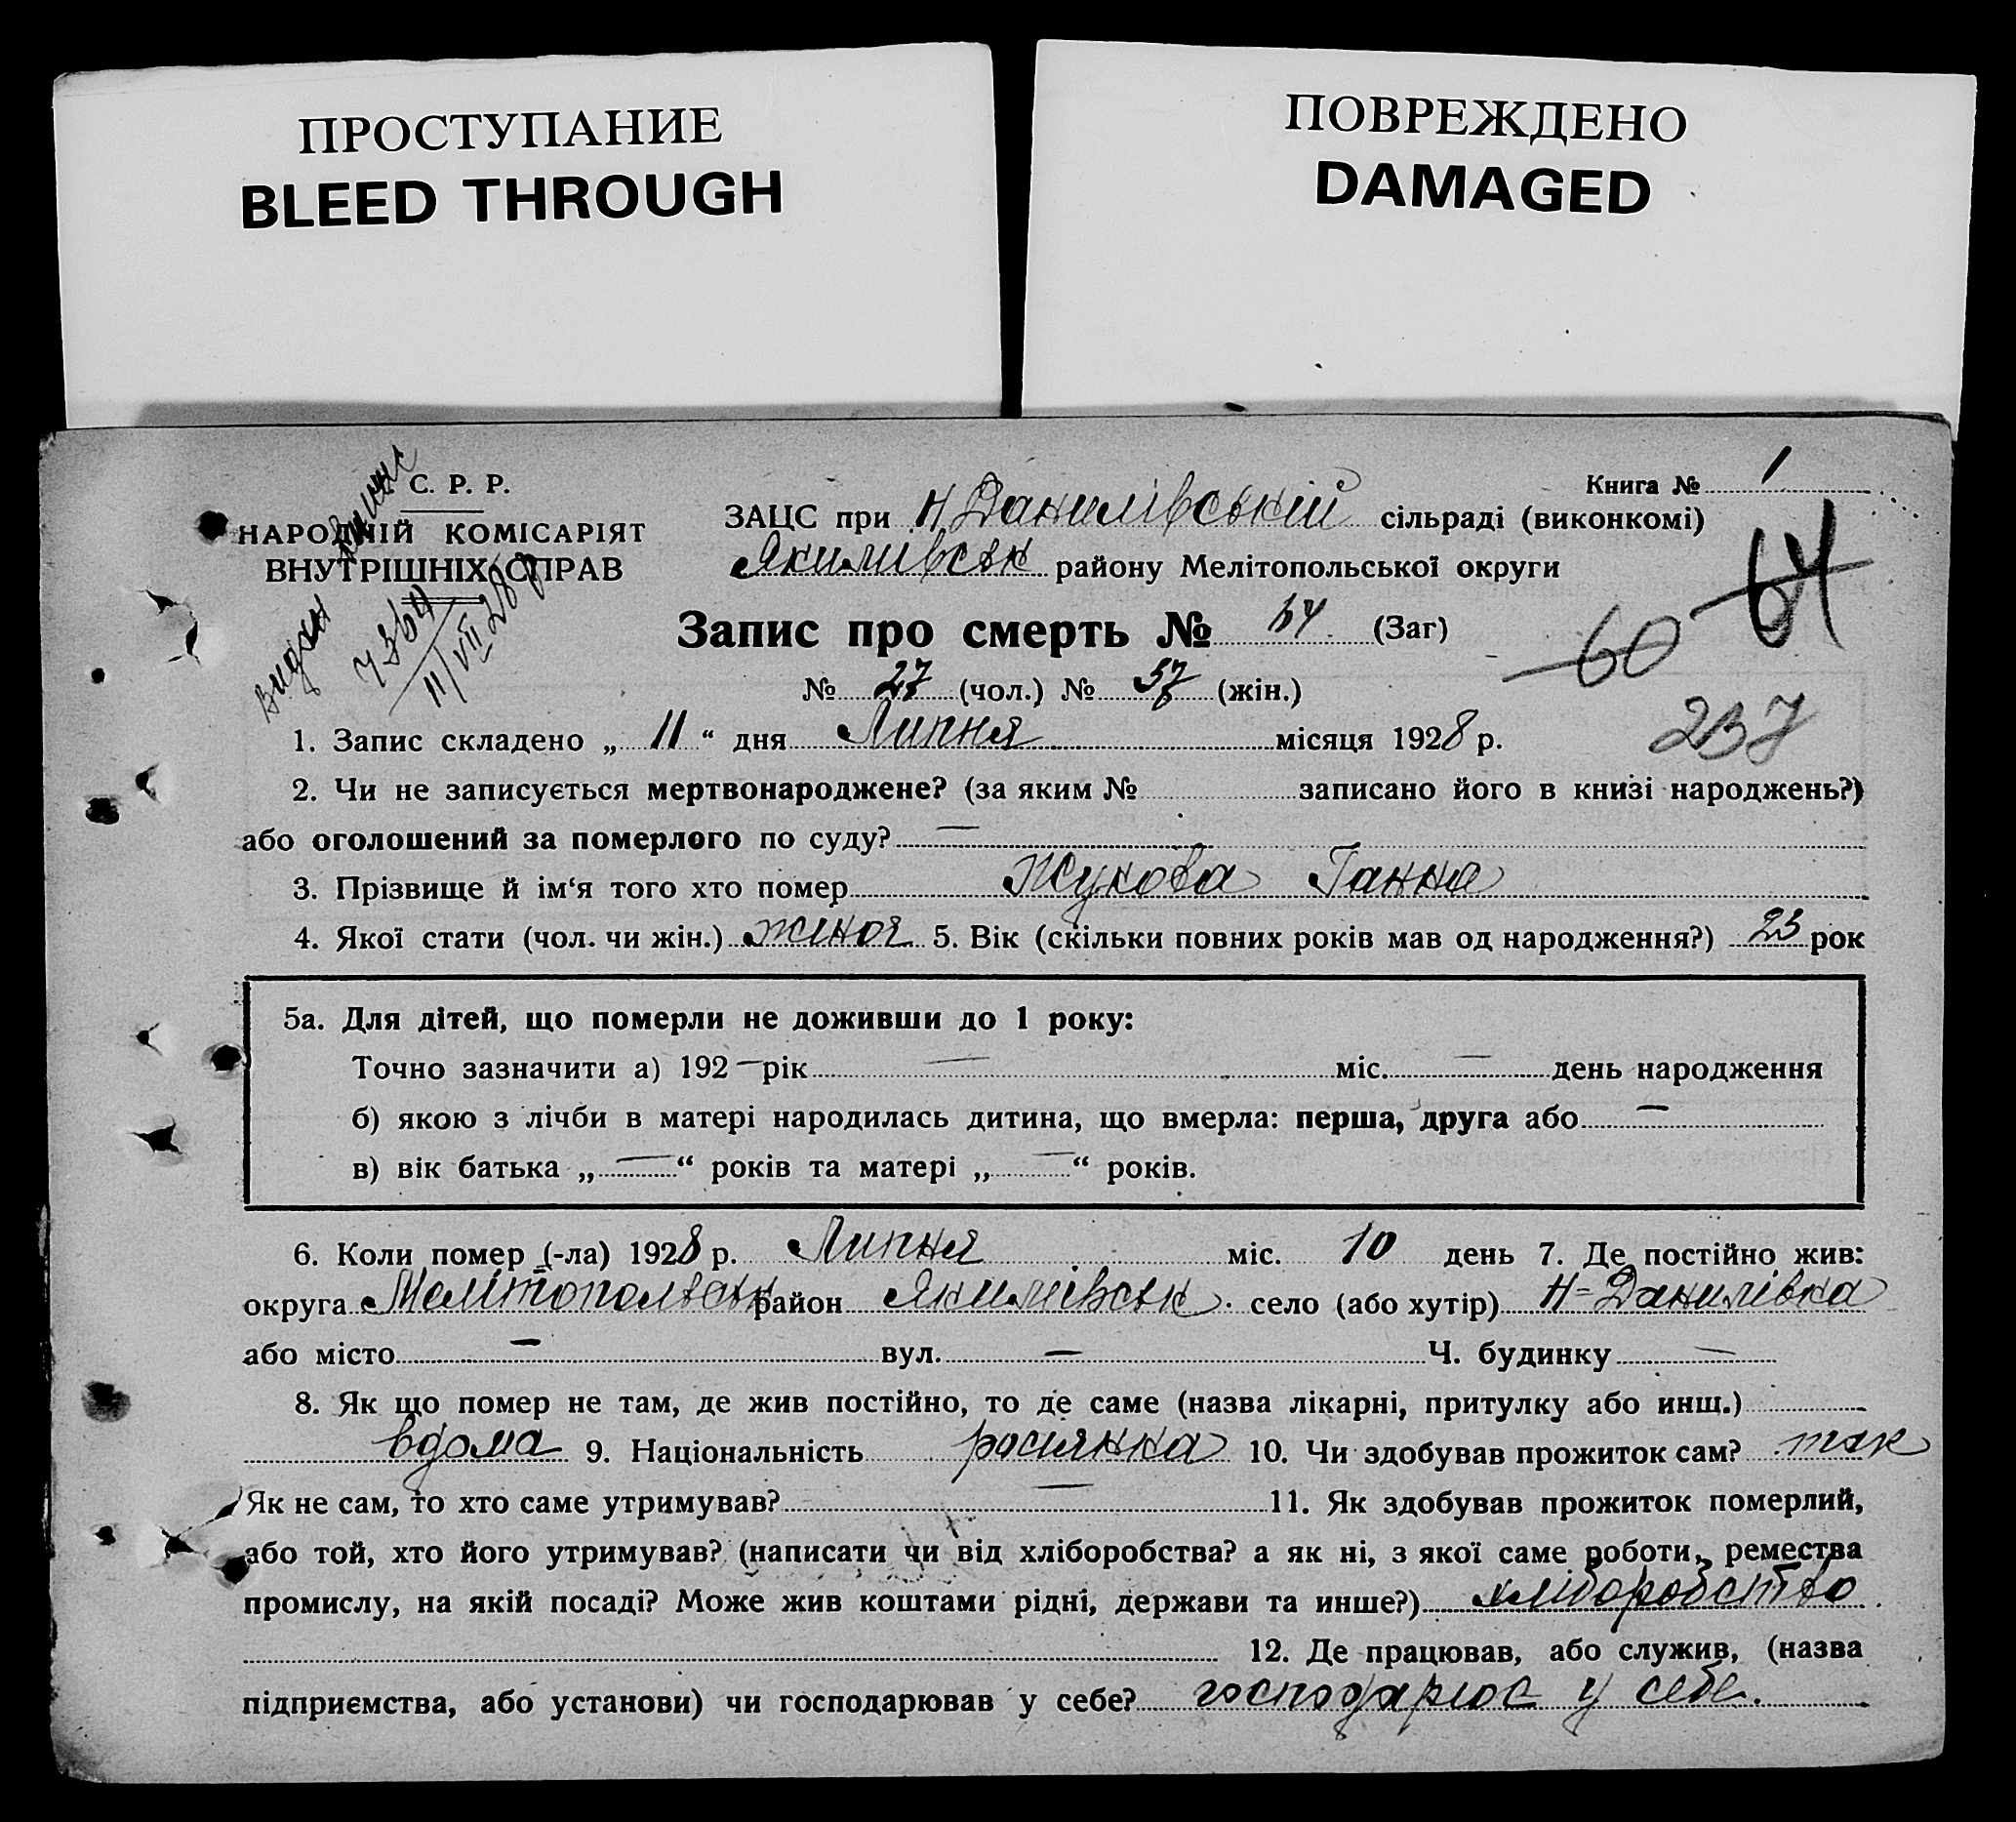 ПРОСТУПАНИЕ
BLEED THROUGH
ПОВРЕЖДЕНО
DAMAGED
С. Р. Р.
НАРОДНІЙ КОМІСАРІЯТ
ВНУТРІШНІХ СПРАВ
видан
11/VII 28 р
Книга № 1
ЗАЦС при Н Данилівській сільраді (виконкомі)
Якимівськ району Мелітопольської округи
64
Запис про смерть № 64 (Заг)
60
№ 27 (чол.) № 37 (жін.)
237
1. Запис складено „ 11 “ дня Липня місяця 1928 р.
2. Чи не записується мертвонароджене? (за яким № записано його в книзі народжень?)
або оголошений за померлого по суду? —
3. Прізвище й ім‘я того хто помер Жукова Ганна
4. Якої стати (чол. чи жін.) жіноч 5. Вік (скільки повних років мав од народження?) 23 рок
5а. Для дітей, що померли не доживши до 1 року:
Точно зазначити а) 192 — рік — міс. — день народження
б) якою з лічби в матері народилась дитина, що вмерла: перша, друга або —
в) вік батька „ — “ років та матері „ — “ років.
6. Коли помер (-ла) 1928 р. Липня міс. 10 день 7. Де постійно жив:
округа Мелітопольськ район Якимівськ село (або хутір) Н-Данилівка
або місто — вул. — Ч. будинку —
8. Як що помер не там, де жив постійно, то де саме (назва лікарні, притулку або инш.)
вдома 9. Національність росіянка 10. Чи здобував прожиток сам? так
Як не сам, то хто саме утримував? — 11. Як здобував прожиток померлий,
або той, хто його утримував? (написати чи від хліборобства? а як ні, з якої саме роботи, ремества
промислу, на якій посаді? Може жив коштами рідні, держави та инше?) хліборобство
12. Де працював, або служив, (назва
підприємства, або установи) чи господарював у себе? господарює у себе.